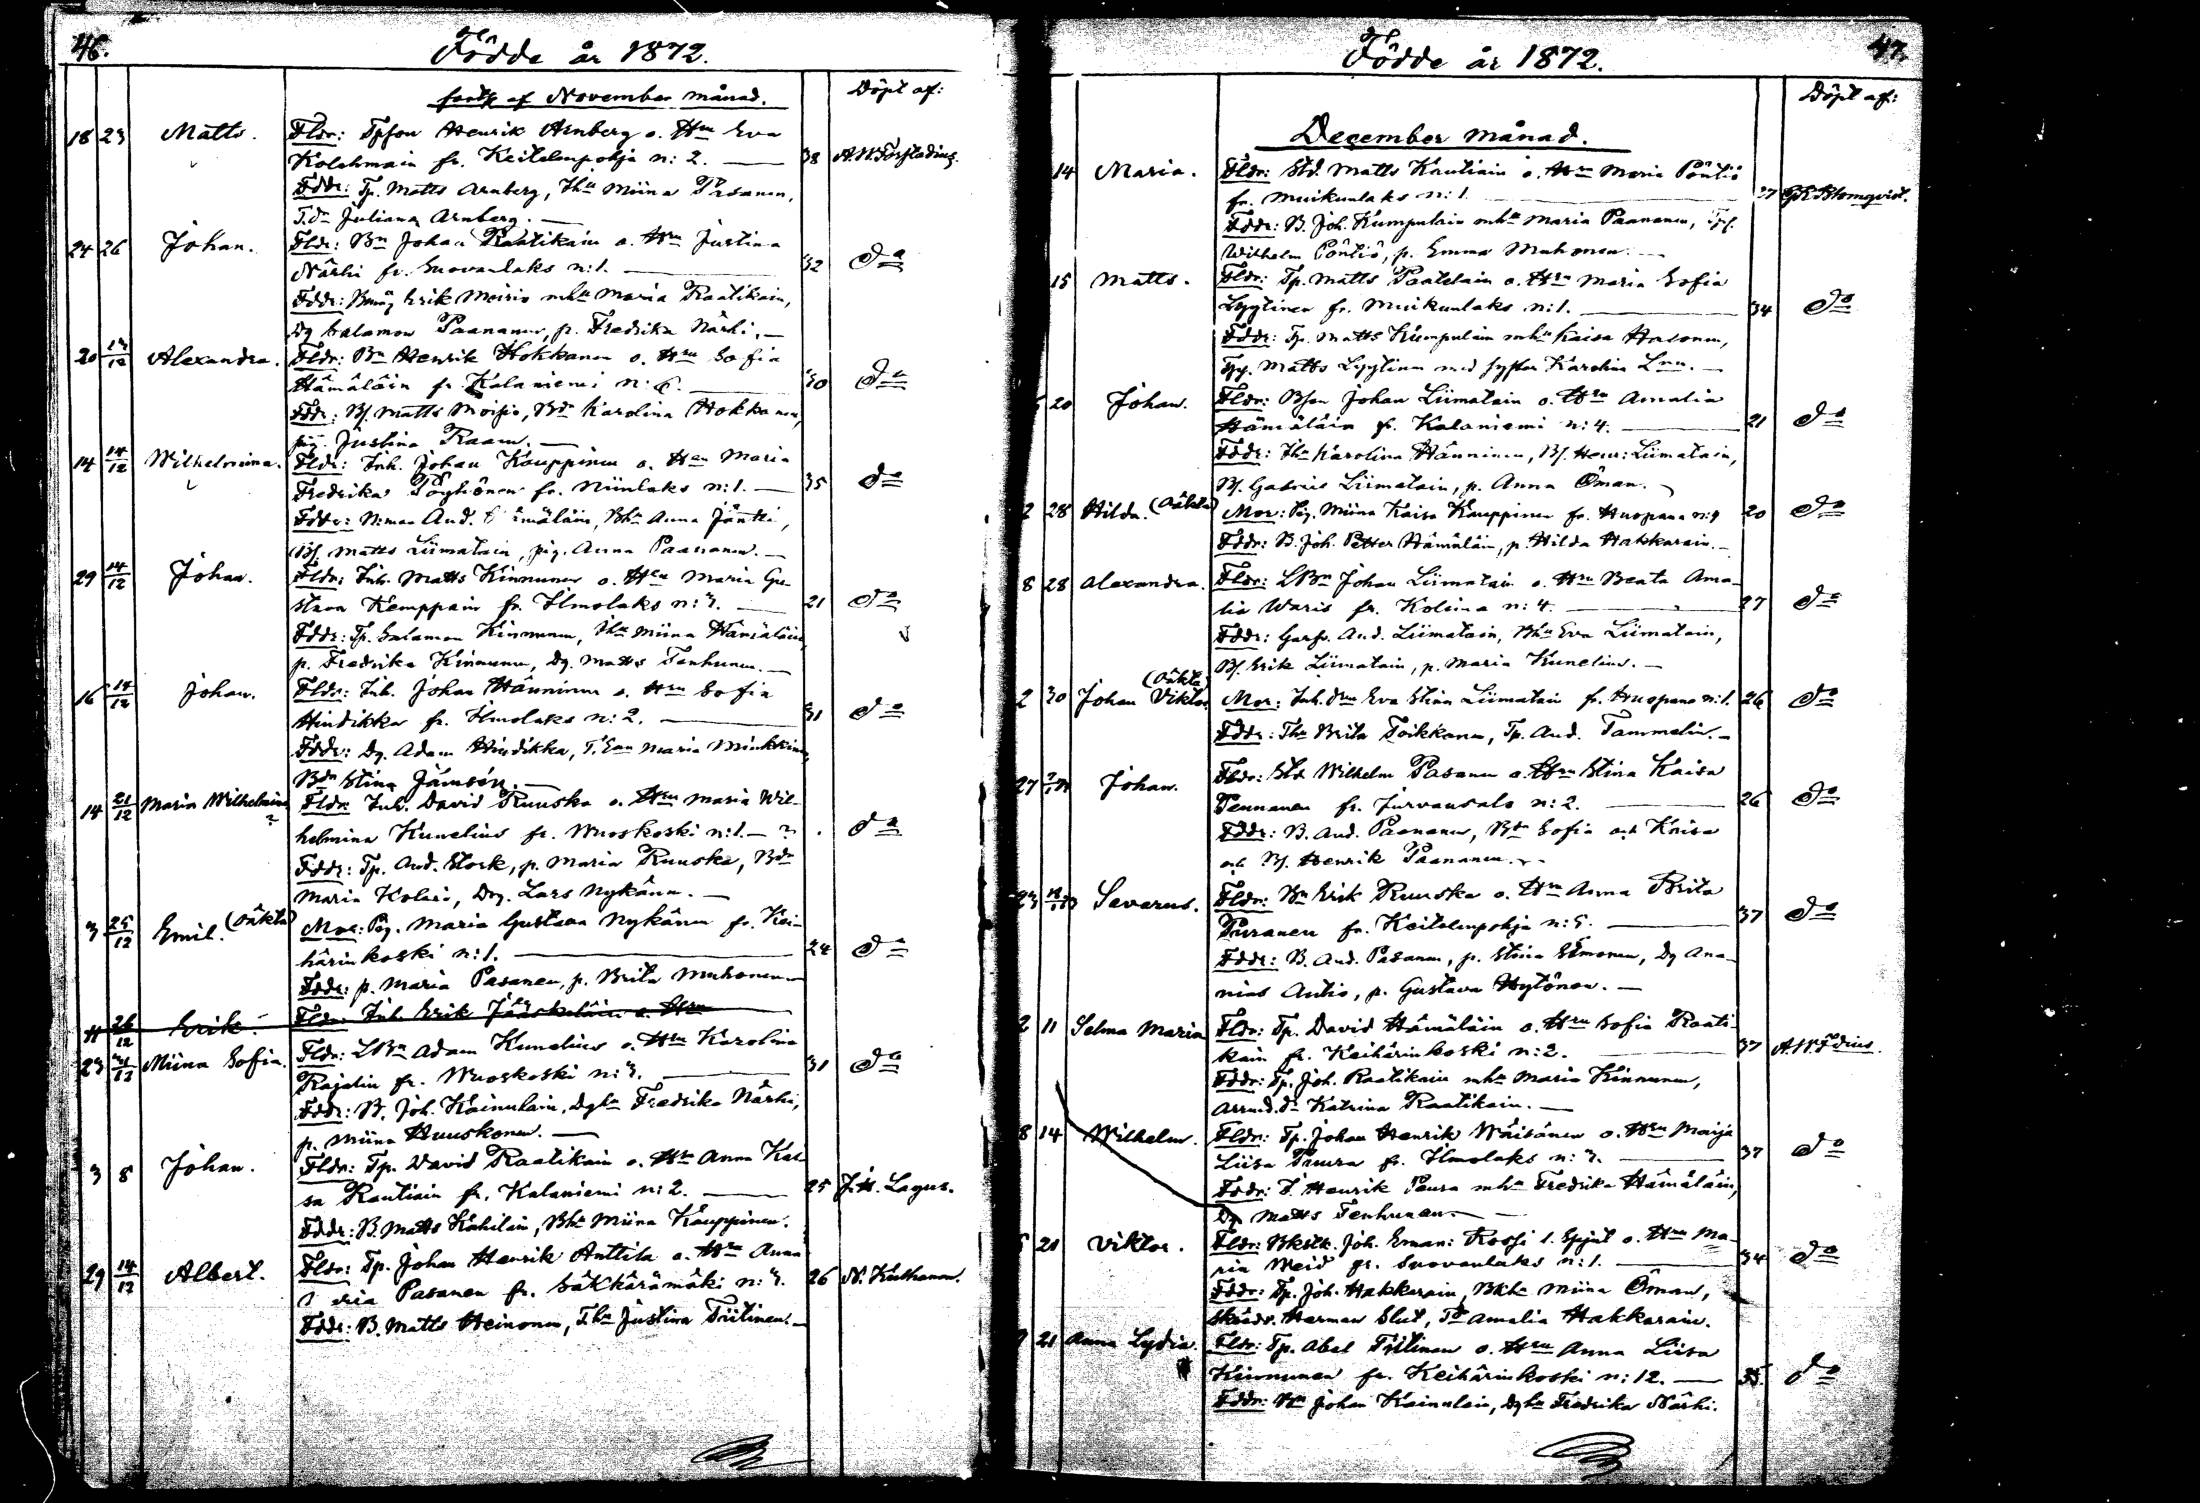 46.
Födde år 1872.
forts. af November månad.
Döpt af:
18 23 Matts. Fldr: Tpson Henrik Arnberg o. Hru Eva
Kolehmain fr. Keitelenpohja n: 2. — 38 A.W. Forstadius.
Fddr: Tp. Matts Arnberg, Thu Miina Pasanen,
T.dr Juliana Arnberg. —
24 26 Johan. Fldr: Bn Johan Raatikain o. Hru Justina
Närhi fr. Suovanlaks n:1. — 32 do
Fddr: Bmåg Erik Moisio mhu Maria Raatikain,
Dg Salamon Paananen, p. Fredrika Närhi. —
20 14/12 Alexandra. Fldr: Bn Henrik Hokkanen o. Hru Sofia
Hämäläin fr. Kalaniemi n: 6. — 30 do
Fddr: Bs. Matts Moisio, Bdr Karolina Hokkanen,
pig. Justina Raam. —
14 14/12 Wilhelmina. Fldr: Inh. Johan Kauppinen o. Hru Maria
Fredrika Pöyhönen fr. Niinlaks n:1. — 35 do
Fddr: And. Hämäläin, Bhu Anna Jäntti,
Bs. Matts Liimatain, pig. Anna Paananen. —
29 14/12 Johan. Fldr: Inh. Matts Kinnunen o. Hru Maria Gu-
stava Kemppain fr. Ilmolaks n: 3. — 21 do
Fddr: Tp. Salamon Kinnunen, Ihu Miina Hämäläin,
p. Fredrika Kinnunen, Dg. Matts Tenhunen. —
16 14/12 Johan. Fldr: Inh. Johan Hänninen o. Hru Sofia
Hindikka fr. Ilmolaks n: 2. — 31 do
Fddr: Dg. Adam Hindikka, Maria Minkkinen,
Bdr Stina Jämsén. —
14 21/12 Maria Wilhelmina ? Fldr: Inh. David Ruuska o. Hru Maria Wil-
helmina Kunelius fr. Wuoskoski n:1. — ? . do
Fddr: Tp. And. Stork, p. Maria Ruuska, Bdr
Maria Kolari, Drg. Lars Nykänen. —
3 25/12 Emil. (oäkta) Mor: Pig. Maria Gustava Nykänen fr. Kei-
härinkoski n:1. — 24 do
Fddr: p. Maria Pasanen, p. Brita Muhonen. —
11 26/12 Erik. Fldr: Inh. Erik Jääskeläin o. Hru
23 31/12 Miina Sofia. Fldr: LBn Adam Kunelius o. Hru Karolina
Rajalin fr. Wuoskoski n: 3. — 31 do
Fddr: B. Joh. Kainulain, Dghu Fredrika Närhi,
p. Miina Huuskonen. —
3 8 Johan. Fldr: Tp. David Raatikain o. Hru Anna Kai-
sa Rautiain fr. Kalaniemi n: 2. — 25 J.H. Lagus.
Fddr: B. Matts Kahilain, Bhu Miina Kauppinen.
29 14/12 Albert. Fldr: Tp. Johan Henrik Anttila o. Hru Anna
Maria Pasanen fr. Säkkärämäki n: 3. 26 N. Kulhanen.
Fddr: B. Matts Heinonen, Thu Justina Tiitinen. —
47.
Födde år 1872.
Döpt af:
December månad.
14 Maria. Fldr: Std. Matts Rautiain o. Hru Maria Pöntiö
fr. Muikunlaks n:1. — 27 Blomqvist.
Fddr: B. Joh. Kumpulain mhu Maria Paananen, Tps.
Wilhelm Pöntiö, p. Emma Muhonen. —
15 Matts. Fldr: Tp. Matts Paatelain o. Hru Maria Sofia
Lyytinen fr. Muikunlaks n:1. — 34 do
Fddr: Tp. Matts Kumpulain mhu Kaisa Halonen,
Matts Lyytinen med syster Karolina Lnn. —
20 Johan. Fldr: Bson Johan Liimatain o. Hru Amalia
Hämäläin fr. Kalaniemi n: 4. — 21 do
Fddr: Ihu Karolina Hänninen, Bs. Henr: Liimatain,
Bs. Gabriel Liimatain, p. Anna Öman. —
2 28 Hilda. (oäkta) Mor: Pig. Miina Kaisa Kauppinen fr. Huopana n:4 20 do
Fddr: B. Joh. Petter Hämäläin, p. Hilda Hakkarain. —
8 28 Alexandra. Fldr: LBn Johan Liimatain o. Hru Beata Ama-
lia Waris fr. Kolima n: 4. — 27 do
Fddr: Garfv. And. Liimatain, Bhu Eva Liimatain,
Bs. Erik Liimatain, p. Maria Kunelius. —
2 30 Johan Viktor (oäkta) Mor: Inh. Eva Stina Liimatain fr. Huopana n:1. 26 do
Fddr: Thu Brita Toikkanen, Tp. And. Tammelin. —
27 Johan. Fldr: Std Wilhelm Pasanen o. Hru Stina Kaisa
Pennanen fr. Jurvansalo n: 2. — 26 do
Fddr: B. And. Paananen, Bdr Sofia och Kaisa
och Bs. Henrik Paananen. —
23 Severus. Fldr: Bn Erik Ruuska o. Hru Anna Brita
Puranen fr. Keitelenpohja n: 5. — 37 do
Fddr: B. And. Pasanen, p. Stina Simonen, Dg Ana-
nias Autio, p. Gustava Hytönen. —
2 11 Selma Maria Fldr: Tp. David Hämäläin o. Hru Sofia Raati-
kain fr. Keihärinkoski n: 2. — 37 A.W. Fdius.
Fddr: Tp. Joh. Raatikain mhu Maria Kinnunen,
Arrend.dr Katrina Raatikain. —
8 14 Wilhelm. Fldr: Tp. Johan Henrik Wäisänen o. Hru Maija
Liisa Puura fr. Ilmolaks n: 3. — 37 do
Fddr: I. Henrik Puura mhu Fredrika Hämäläin,
Dg Matts Tenhunen. —
21 Viktor. Fldr: Joh. Eman: Rossi l. Spjut o. Hru Ma-
ria Weid fr. Suovanlaks n:1. — 34 do
Fddr: Tp. Joh. Hakkarain, Miina Öman,
Skräds. Herman Slut, Amalia Hakkarain.
9 21 Anna Lydia. Fldr: Tp. Abel Tiitinen o. Hru Anna Liisa
Kinnunen fr. Keihärinkoski n: 12. — 35 do
Fddr: Bn Johan Kainulain, Dghu Fredrika Närhi.